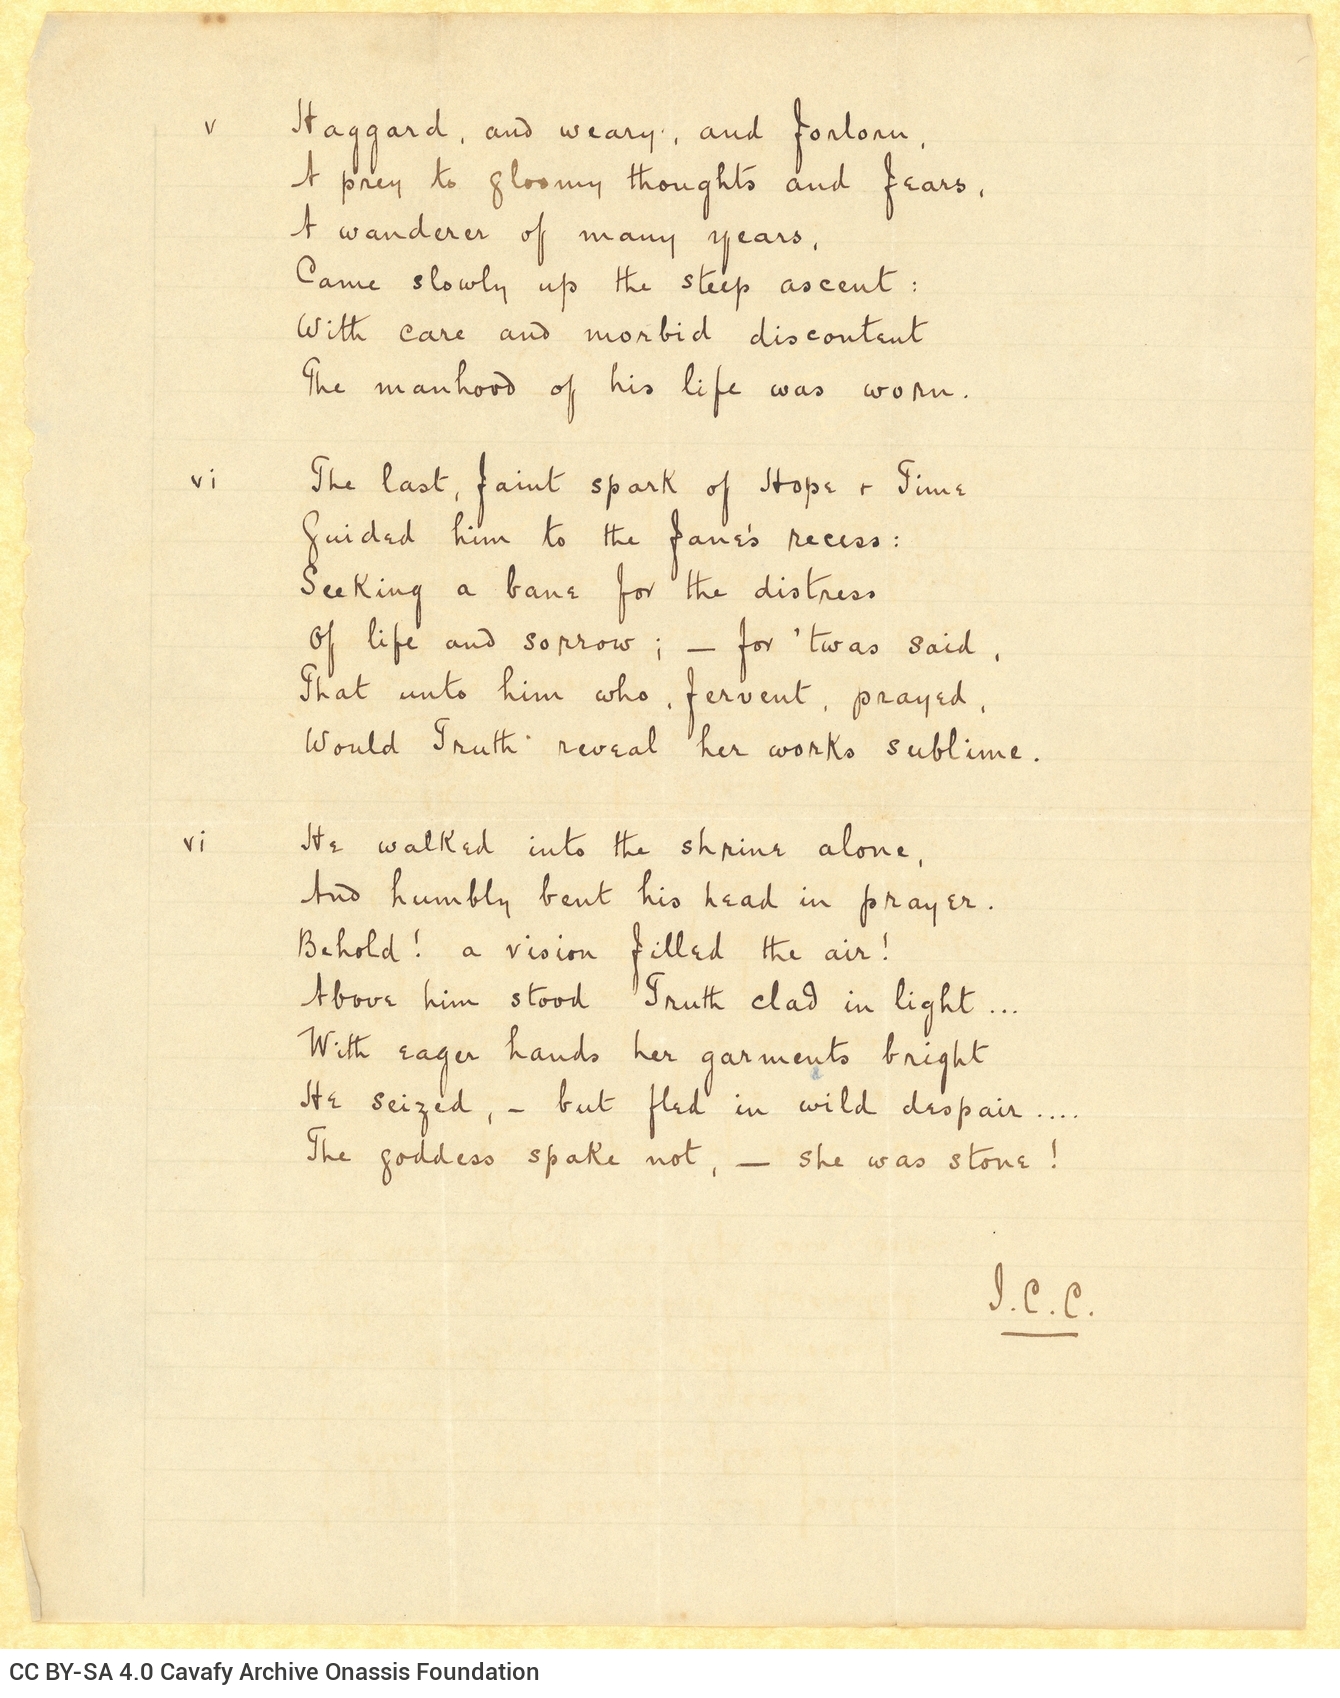 v Haggard, and weary, and forlorn,
A prey to gloomy thoughts and fears,
A wanderer of many years,
Came slowly up the steep ascent:
With care and morbid discontent
The manhood of his life was worn.
vi The last, faint spark of Hope + Time
Guided him to the fane's recess:
Seeking a bane for the distress
Of life and sorrow; — for 'twas said,
That unto him who, fervent, prayed,
Would Truth reveal her works sublime.
vi He walked into the shrine alone,
And humbly bent his head in prayer.
Behold! a vision filled the air!
Above him stood Truth clad in light...
With eager hands her garments bright
He seized, – but fled in wild despair....
The goddess spake not, — she was stone!
J.C.C.
CC BY-SA 4.0 Cavafy Archive Onassis Foundation